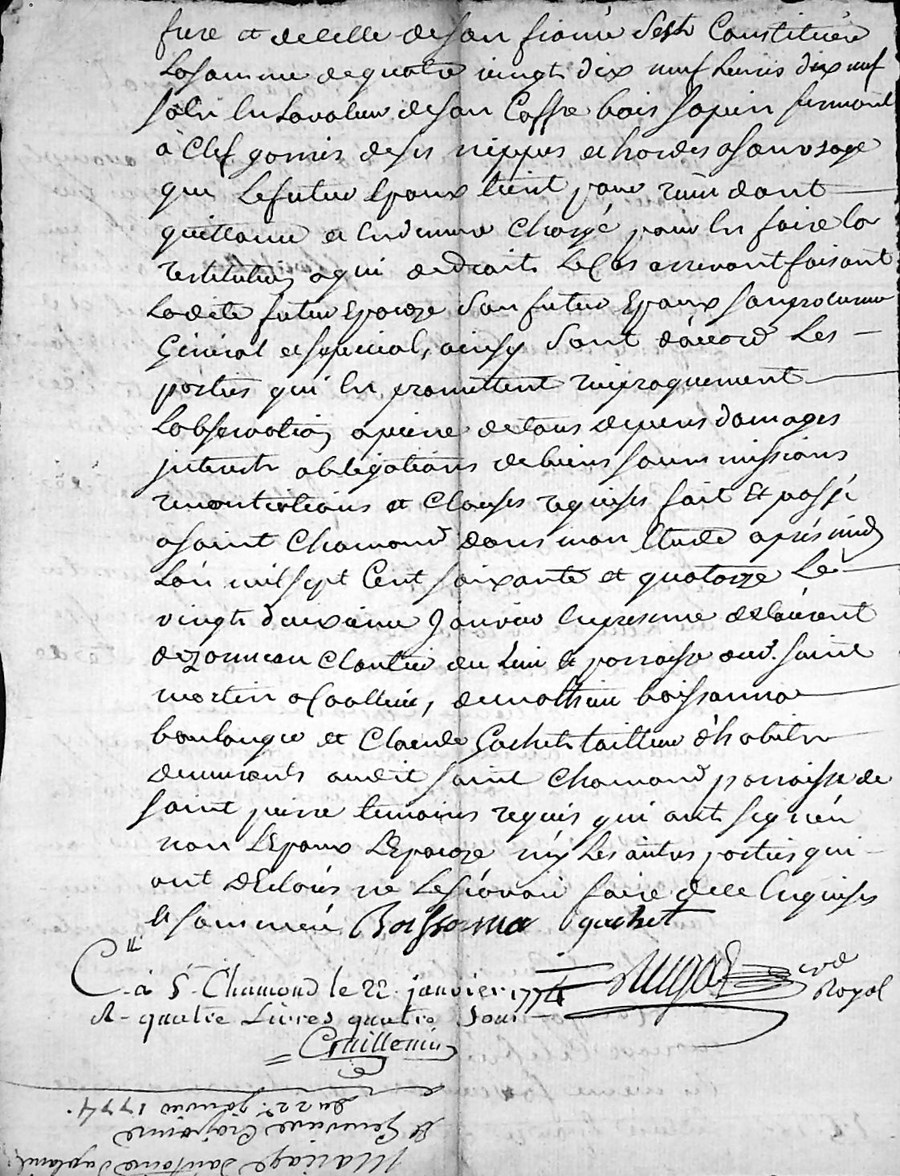 frere et de celle de son fiancé s'est Constituée
La somme de quatre vingt dix neuf Livres dix neuf
sols en La valeur de son Coffre bois sapin fermant
à Clef garnis de ses nippes et hardes a son usage
que Le futur Epoux tient pour reçu dont
quittance et en demeure Chargé pour en faire la
restitution a qui de droit Le Cas arrivant faisant
Ladite future Epouze son futur Epoux son procureur
Général et special, ainsy sont d'accord Les
parties qui en promettent reciproquement
L'observation a peine de tous depens domages
interets obligations de biens soumissions
renontiations et Clauses requises fait et passé
a saint Chamond dans mon Etude après midy
L'an mil sept Cent soixante et quatorze Le
vingt deuxieme Janvier en presence de Laurent
Cloutier du Lieu et parroisse dud. saint
martin a Coallieu, de mathieu boissonna
boulanger et Claude Gachet tailleur d'habits
demeurants audit saint Chamond parroisse de
saint pierre temoins requis qui ont signé
non L'Epoux L'Epouze ny Les autres parties qui
ont declarés ne Le sçavoir faire de ce Enquises
et sommées Boissonna gachet
C.llé à St. Chamond le 22 janvier 1774
R. quatre Livres quatre Sous
royal
Guillemin
du 22e. janvier 1774.
et
Mariage d'antoine